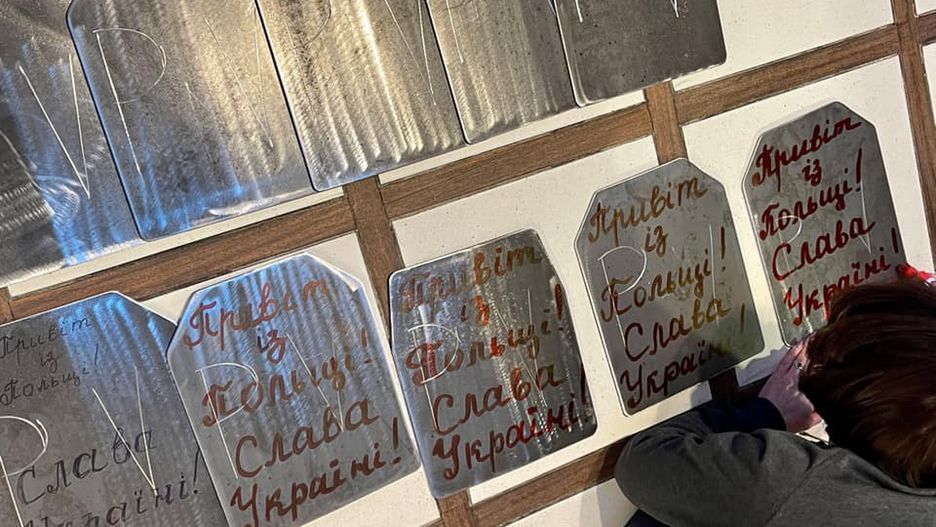 P V
P V
P V
P V
Привіт
із
Польщі!
Слава
Україні!
P V
Привіт
із
Польщі!
Слава
Україні!
P V
Привіт
із
Польщі!
Слава
Україні!
P V
Привіт
із
Польщі!
Слава
Україні!
P V
Привіт
із
Польщі!
Слава
Україні!
P V